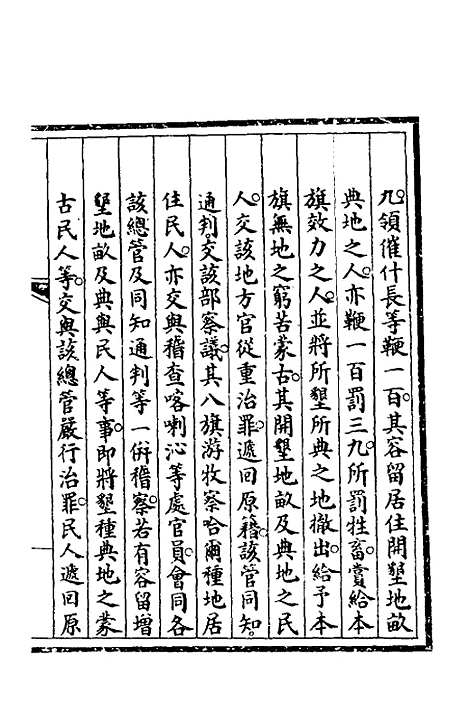 九。領催什長等鞭一百。其容留居住開墾地畝
典地之人。亦鞭一百罰三九。所罰牲畜。賞給本
旗效力之人。並將所墾所典之地撤出。給予本
旗無地之窮苦蒙古。其開墾地畝及典地之民
人。交該地方官從重治罪。遞回原籍。該管同知。
通判。交該部察議。其八旗游牧察哈爾種地居
住民人。亦交與稽查喀喇沁等處官員。會同各
該總管及同知通判等一併稽察。若有容留增
墾地畝及典與民人等事。即將墾種典地之蒙
古民人等。交與該總管嚴行治罪。民人遞回原